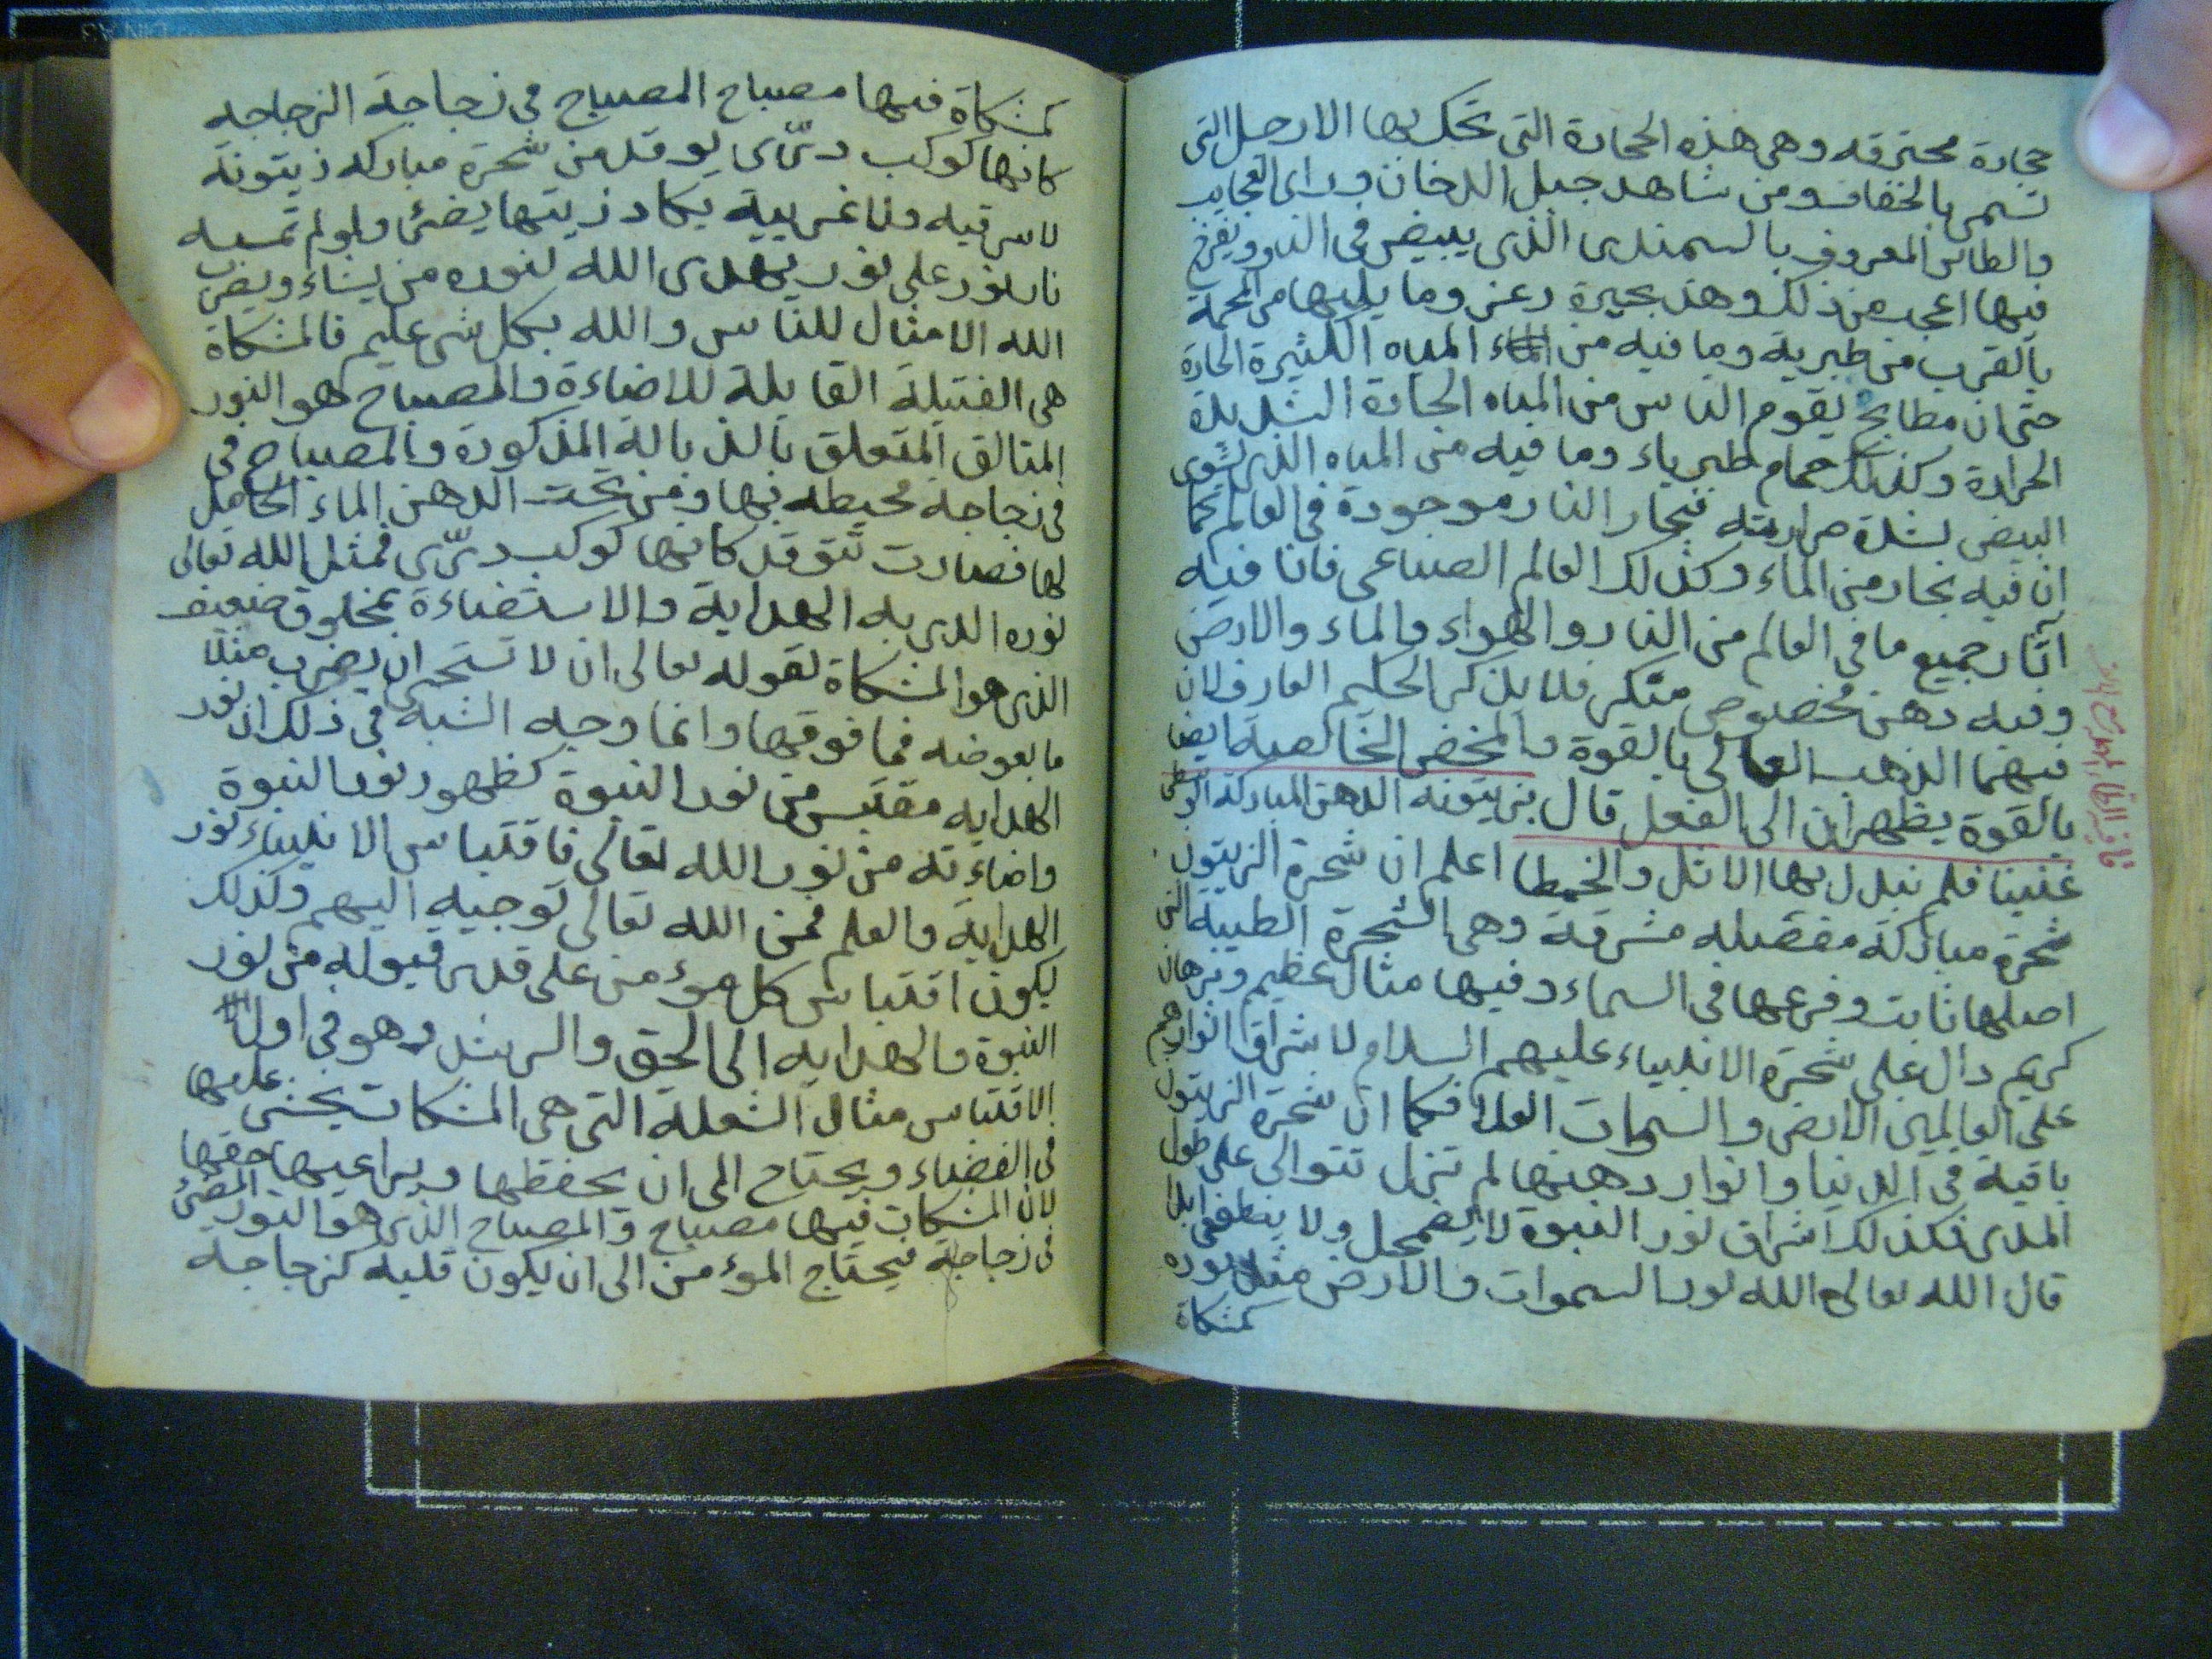 حجارة محترقه وهى هذه الحجارة التى تحك بها الارجل التى
تسمى بالخفاف ومن شاهد جبل الدخان وراى العجايب
والطائر المعروف بالسمندى الذى يبيض فى النار ويفرخ
فيها اعجب من ذلك وهذه بحيرة زعر وما يليها من الحمة
بالقرب من طبرية وما فيه من المياه الكثيرة الحارة
حتى ان مطابخ يقوم الناس من المياه الحارة الشديدة
الحرارة وكذلك حمام طبرياء وما فيه من المياه الذى تشوى
البيض لشدة حرارته فبحار النار موجودة فى العالم كما
ان فيه بحار من الماء وكذلك العالم الصناعى فان فيه
اثار جميع ما فى العالم من النار والهواء والماء والارض
وفيه دهن مخصوص متكرر فلا يذكر الحكيم العارف لان
فيهما الذهب العالى بالقوة والمخض الخالصية ايضا
بالقوة يظهران الى الفعل قال بزيتونة الدهن المباركة الوسطى
غنينا فلم نبدل بها الاثل والخمطا اعلم ان شجرة الزيتون
شجرة مباركة مفضله مشرقة وهى الشجرة الطيبة التى
اصلها ثابت وفرعها فى السماء وفيها مثال عظيم وبرهان
كريم دال على شجرة الانبياء عليهم السلام لاشراق انوارهم
على العالمين الارض والسموات العلا فكما ان شجرة الزيتون
باقية فى الدنيا وانوار دهنها لم تزل تتوالى على طول
المدى فكذلك اشراق نور النبوة لا يضمحل ولا ينطفى ابدا
قال الله تعالى الله نور السموات والارض مثل نوره
كمشكاة
كمشكاة فيها مصباح المصباح فى زجاجة الزجاجه
كانها كوكب درّى يوقد من شجرة مباركه زيتونة
لا شرقيه ولا غربية يكاد زيتها يضئ ولو لم تمسسه
نار نور على نور يهدى الله لنوره من يشاء ويضرب
الله الامثال للناس والله بكل شى عليم فالمشكاة
هى الفتيلة القابلة للاضاءة والمصباح هو النور
المتالق المتعلق بالذبالة المذكورة والمصباح فى
فى زجاجه محيطه بها ومن تحت الدهن الماء الحامل
لها فصارت تتوقد كانها كوكب درّى فمثل الله تعالى
نوره الذى به الهداية والاستضاءة بمخلوق ضعيف
الذى هو المشكاة لقوله تعالى ان لا تستحى ان يضرب مثلا
ما بعوضه فما فوقها وانما وجه الشبه فى ذلك ان نور
الهدايه مقتبس من نور النبوة كظهور نور النبوة
واضاءته من نور الله تعالى فاقتباس الانبياء نور
الهداية والعلم فمن الله تعالى توجيه اليهم وكذلك
يكون اقتباس كل موء من على قدر قبوله من نور
النبوة والهدايه الى الحق والرشد وهو فى اول
الاقتباس مثال الشعلة التى هى المشكات يخشى عليها
فى الفضاء ويحتاج الى ان يحفظها ويراعيها حقها
لان المشكات فيها مصباح والمصباح الذى هو النور المضئ
فى زجاجة فيحتاج الموء من الى ان يكون قلبه كزجاجة